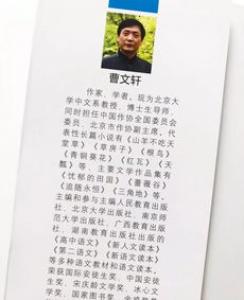 曹文轩
作家、学者。现为北京大
学中文系教授、博士生导师,
同时担任中国作协全国委员会
委员、北京市作协副主席。代
表性长篇小说有《山羊不吃天
堂草》《草房子》《根鸟》
《青铜葵花》《红瓦》《天
瓢》等。主要文学作品集有
《忧郁的田园》《蔷薇谷》
《追随永恒》《三角地》等。
主编和参与主编人民教育出版
社、北京大学出版社、南京师
范大学出版社、广西教育出版
社、湖南教育出版社出版的
《高中语文》《新人文读本》
《第二语文》《新语文读本》
等多种语文教材和语文读本。
荣获国际安徒生奖、中国安徒
生奖、宋庆龄文学奖、冰心文
学奖、国家图书奖、金鸡奖